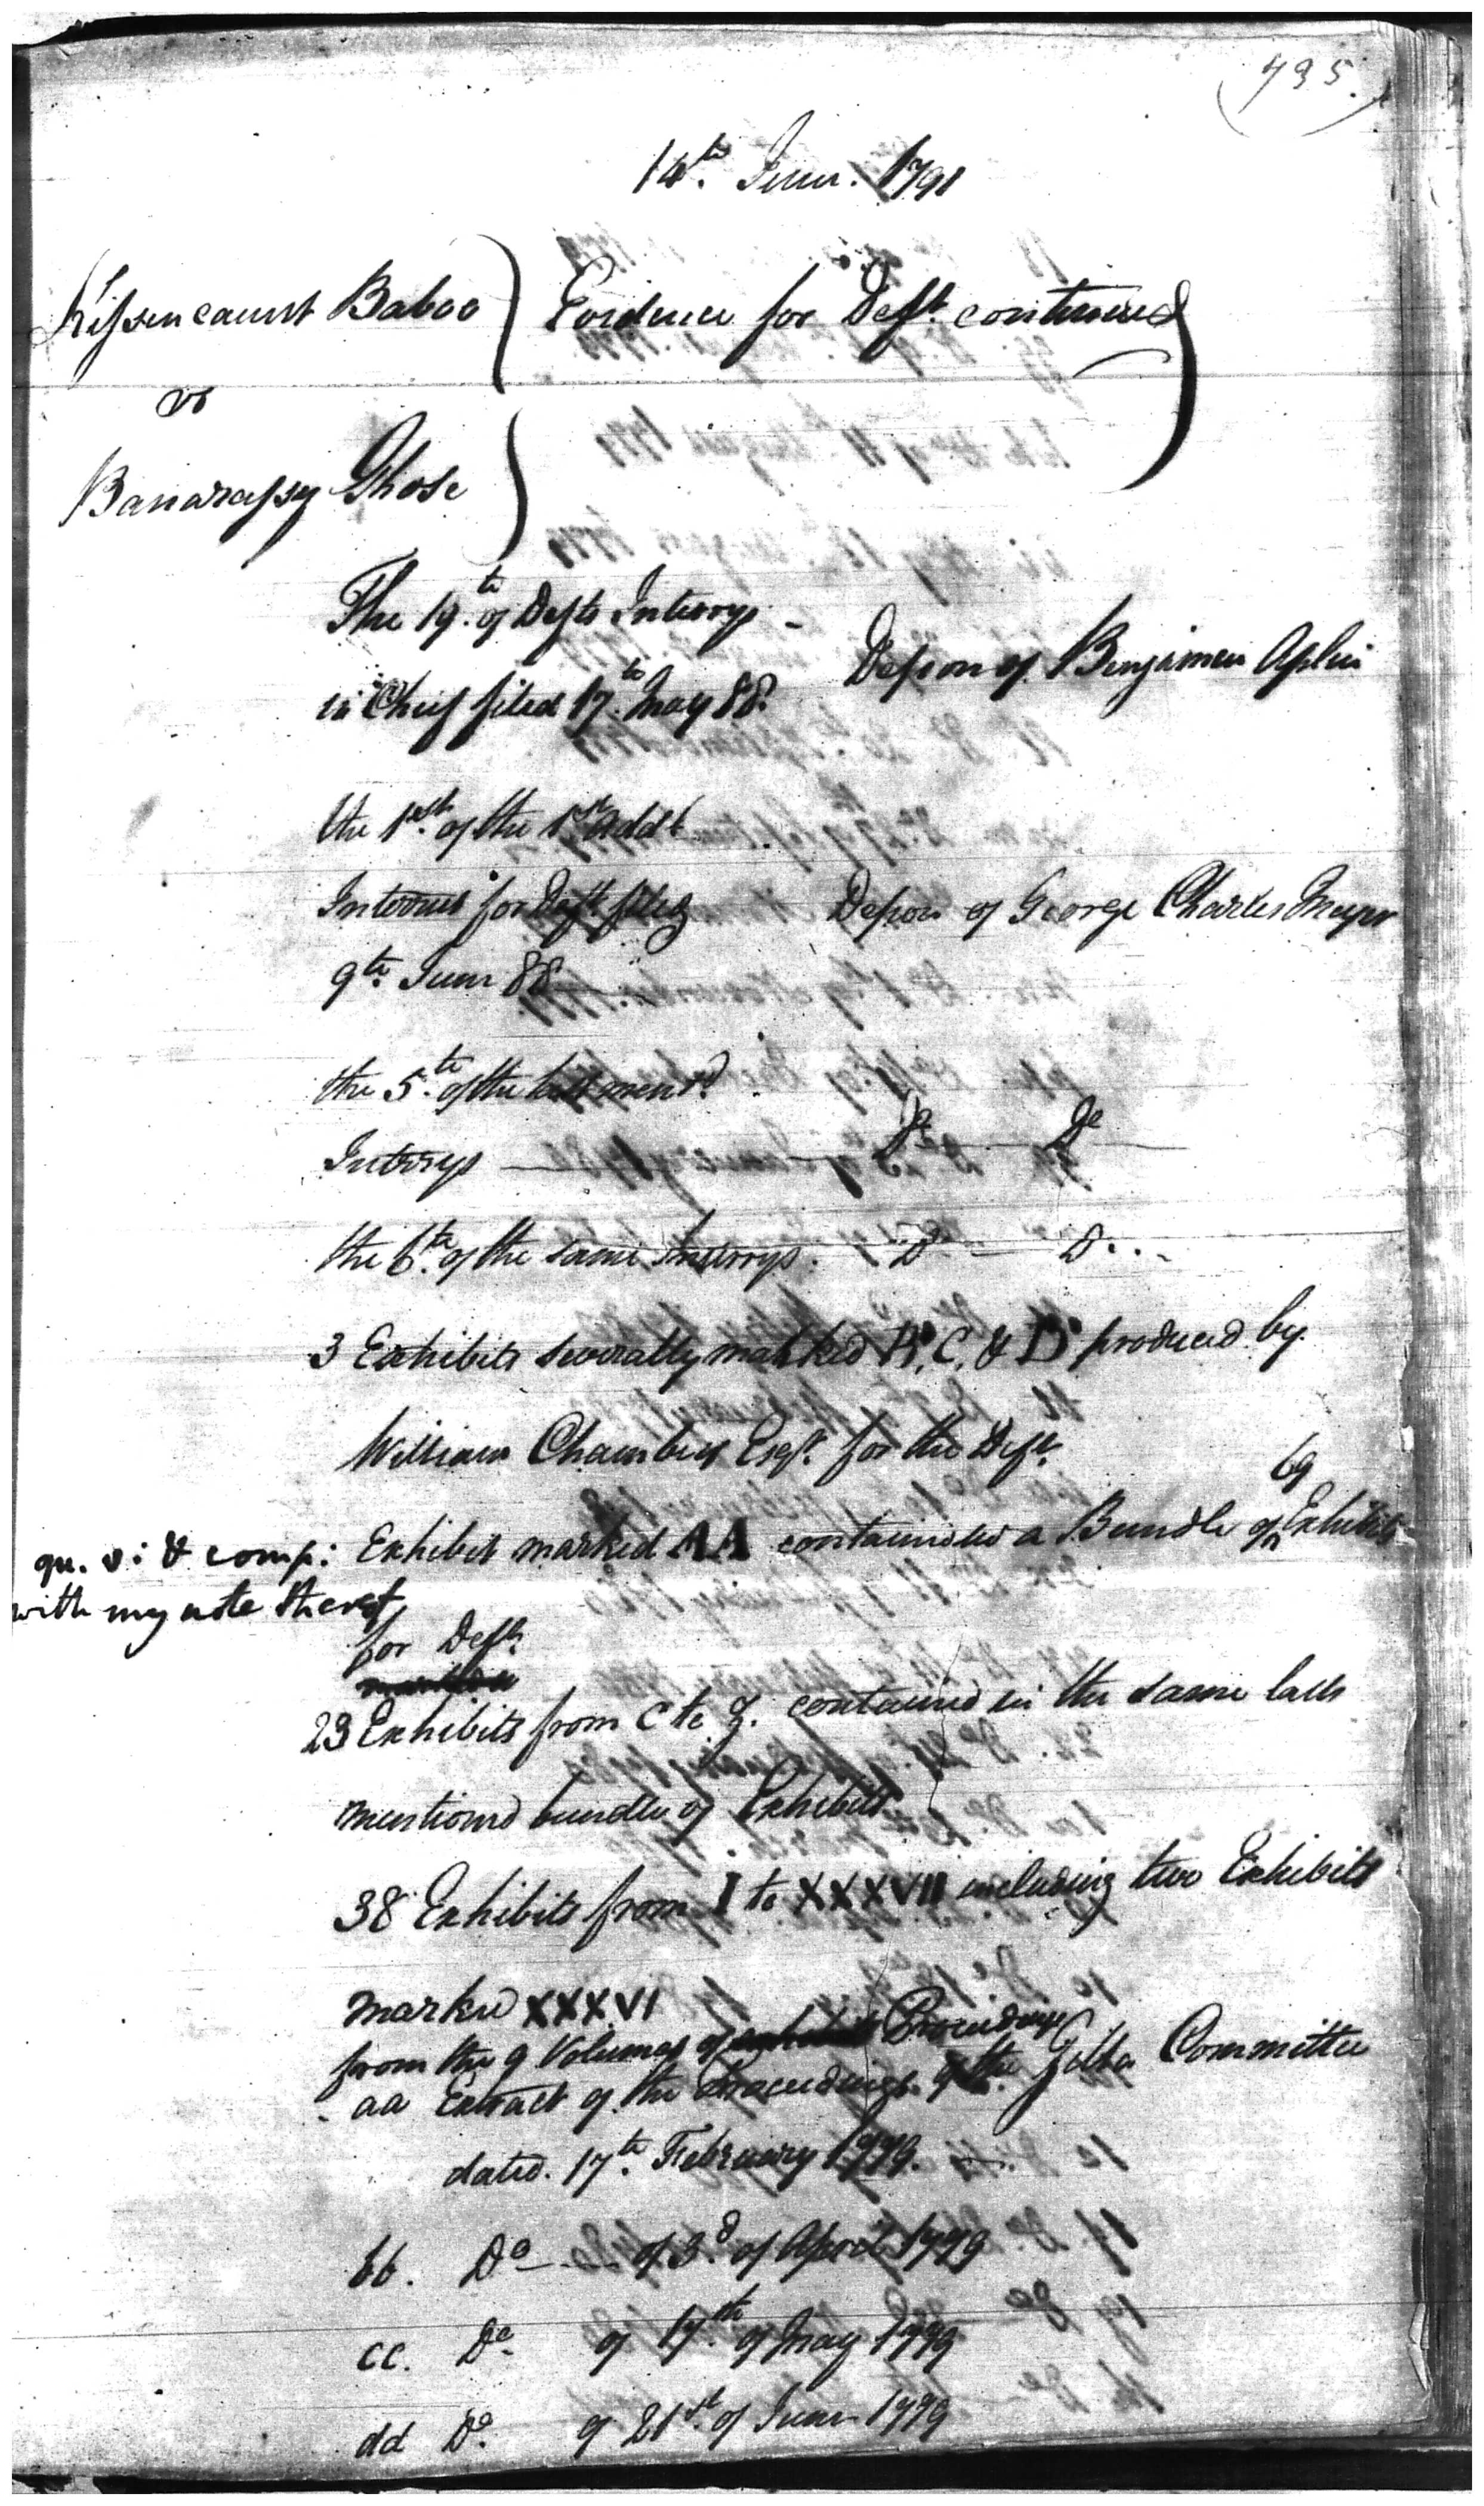 (735.)
14th. June. 1791
Kissencaunt Baboo
Evidence for Deft. continued
vs
Banarassy Ghose
The 19th. of Defts Interrys
in Chief filed 17th. May 88.
Depon of Benjamin Aplin
the 1st. of the 1st Addl
for Deft filed
Depon of George Charles Meyer
9th. June 88
the 5th. of the last mentd.
Interrys Do Do
the 6th. of the same Interrys. Do Do
3 Exhibits severally marked B, C, & D produced by
William Chambers Esqr. for the Deft.
69
Exhibit marked AA contained in a Bundle of Exhibits
qu. v: & comp:
with my note thereof
for Deft.
23 Exhibits from C to Z. contained in the same last
mentioned bundle of Exhibits
38 Exhibits from I to XXXVII including two Exhibits
marked XXXVI
from the 9 Volumes of Proceedings
aa Extract of the Proceedings of the Committee
dated. 17th. February 1779.
bb. Do of 3d. of April 1779
cc. Do. of 17th. of May 1779
dd Do. of 21st. of June 1779